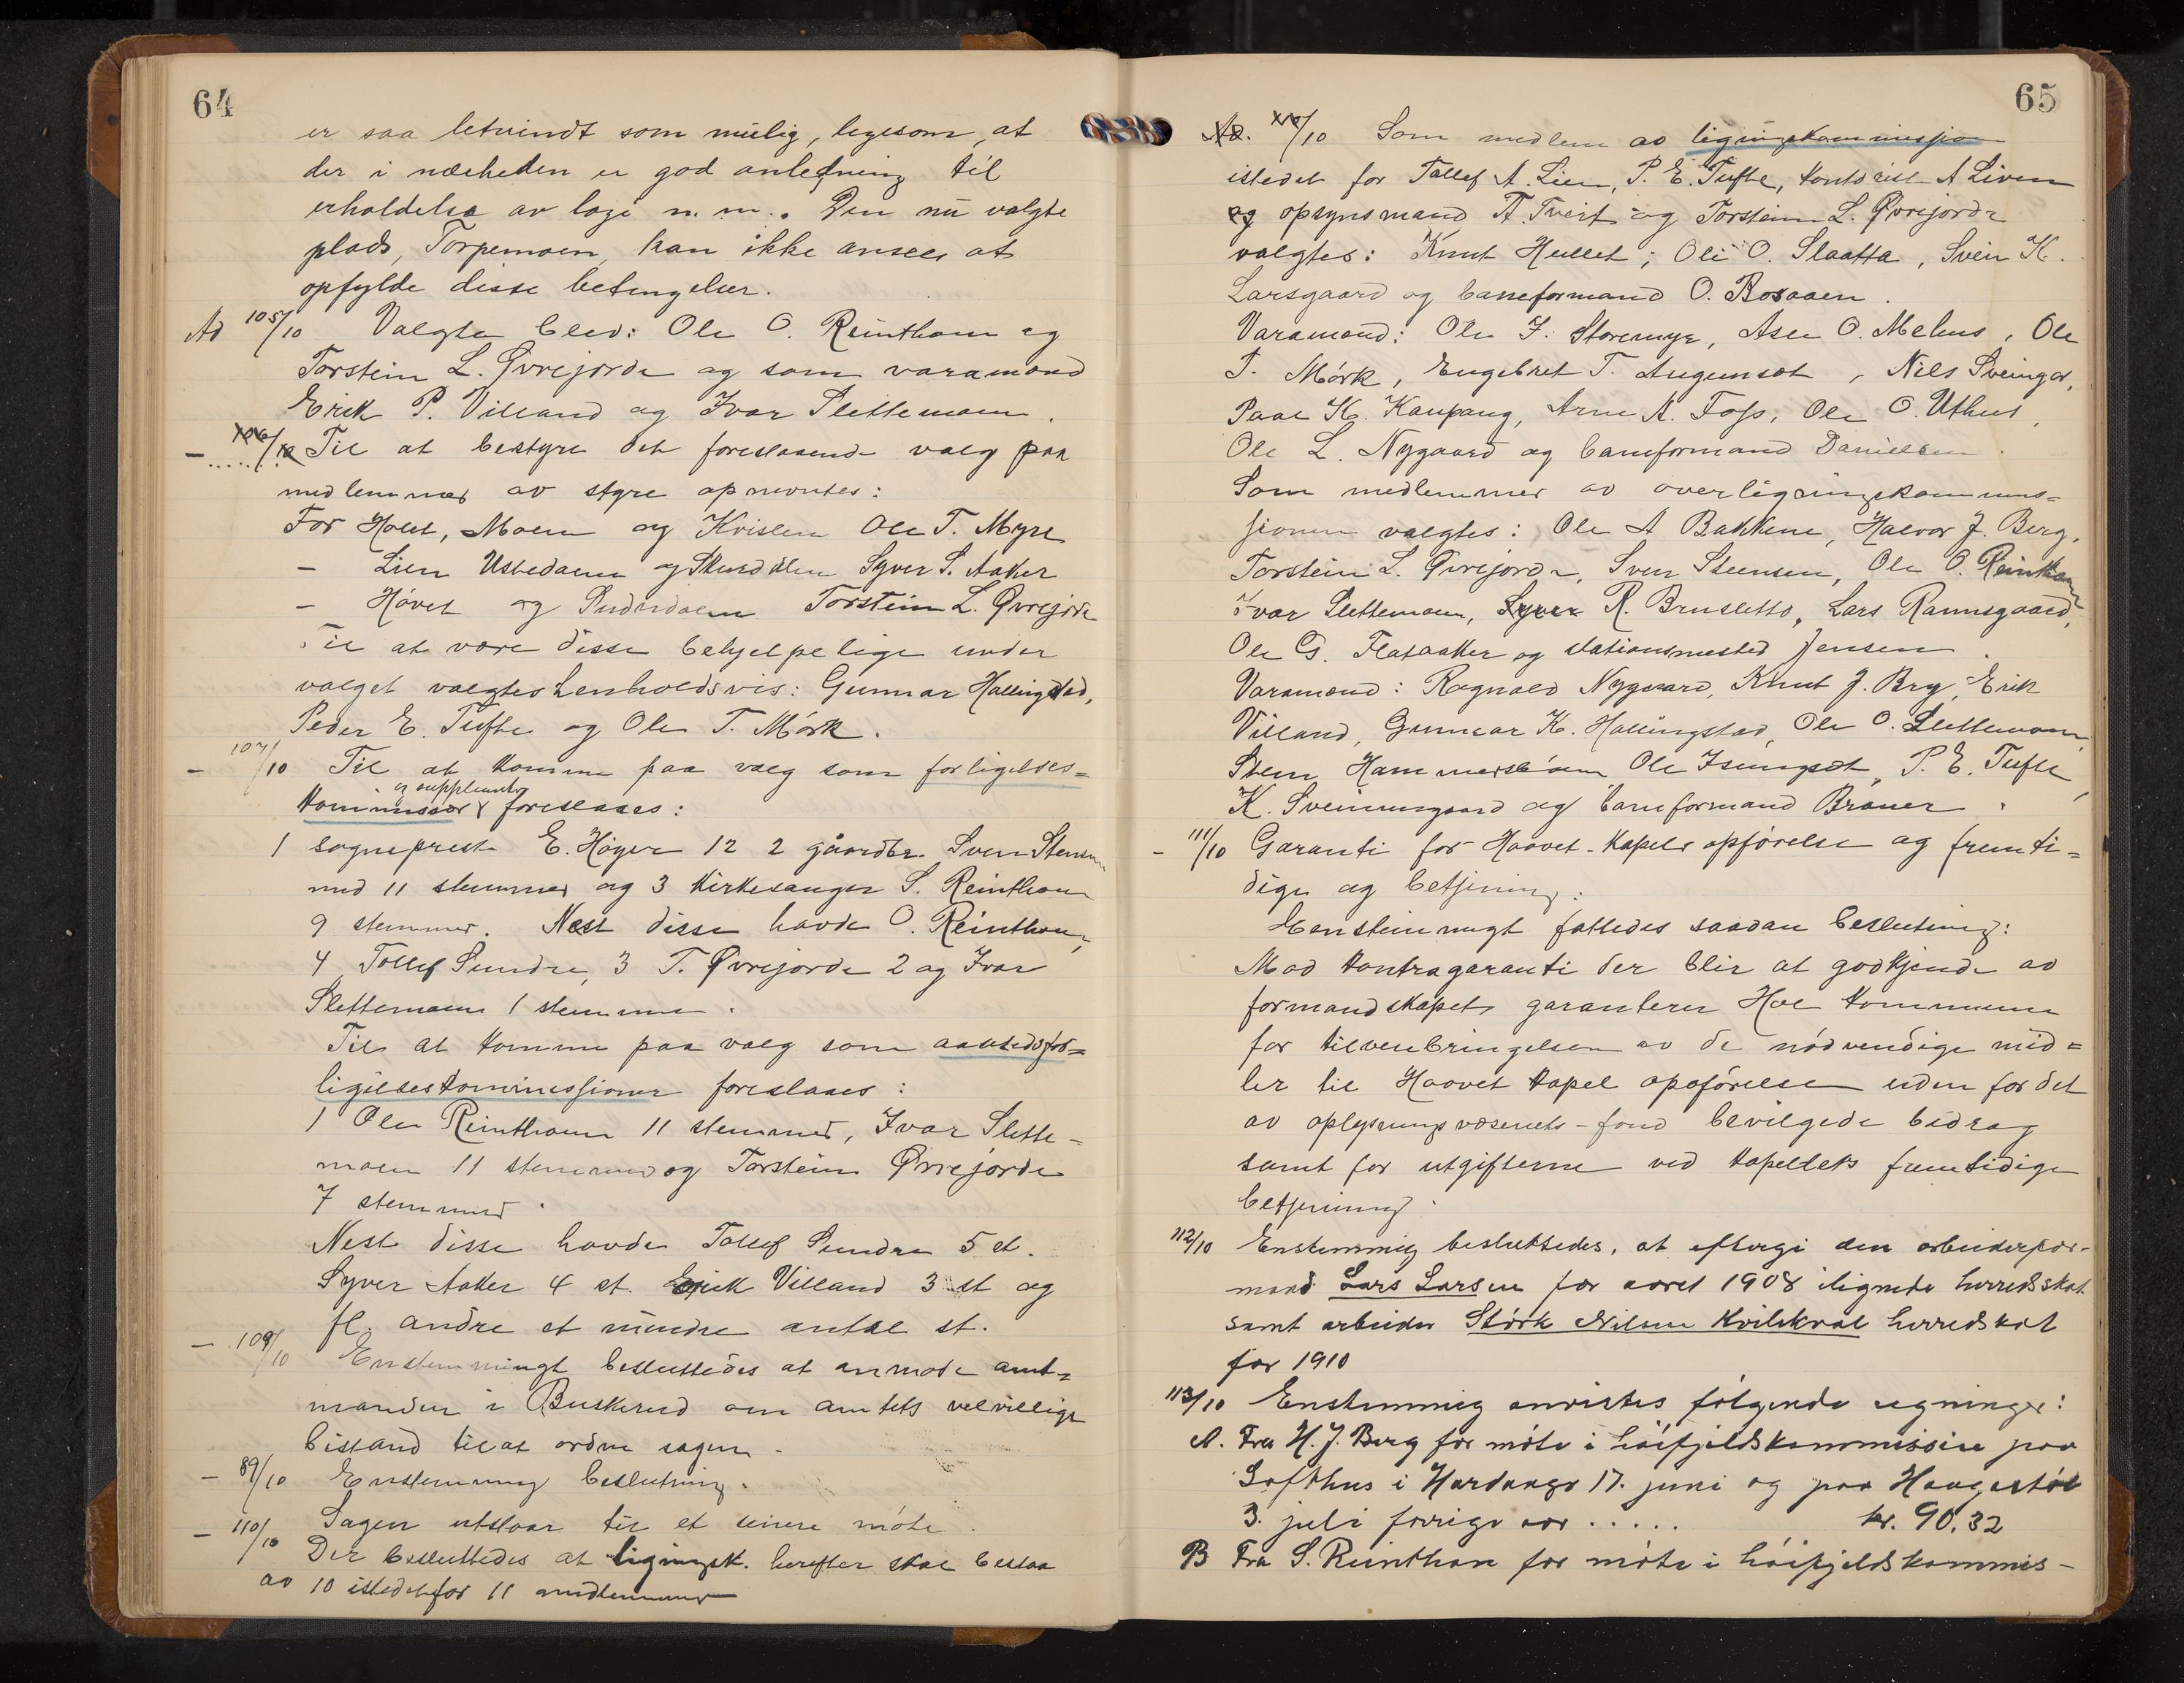 64
er saa letvindt som mulig, legesom, at
der i nærheden er god anledning til
erholdelse av logi n. m.. Den nu valgte
plads, Torpemoen, kan ikke ansees at
opfylde disse betingelser.
Ad 105/10 Valgte blev: Ole O. Reinthon og
Torstein L. Øvrejorde og som varamænd
Erik P. Villand og Ivar Slettemoen.
– 106/10 Til at bestyre det forestaaende valg paa
medlemmer av styre opnevntes:
For Holet, Moen og Kvislen Ole T. Myre
– Lien Ustedalen og Skurdalen Syver S. Aaker
– Hóvet og Sudndalen Torstein L. Øvrejorde
Til at være disse behjelpelige under
valget valgtes henholdsvis: Gunnar Hallingstad,
Peder E. Tufte og Ole T. Mórk.
– 107/10 Til at komme paa valg som forligelses=
og suppleanter
kommissær foreslaaes:
1 sogneprest E. Høyer 12 2 gaardbr. Sven Stensen
med 11 stemmer og 3 kirkesanger S. Reinthon
9 stemmer. Nest disse havde O. Reinthon,
4 Tollef Sundre, 3 T. Øvrejorde 2 og Ivar
Slettemoen 1 stemme.
Til at komme paa valg som aastedsfor=
ligelseskommissioner foreslaaes:
1 Ole Reinthon 11 stemmer, Ivar Slette-
moen 11 stemmer og Torstein Øvrejorde
7 stemmer.
Nest disse havde Tollef Sundre 5 st.
Syver Aaker 4 st. Erik Villand 3 st og
fl. andre et mindre antal st.
– 109/10 Enstemmingt besluttedes at anmode amt=
manden i Buskerud om amtets velvillige
bistand til at ordne sagen.
– 89/10 Enstemmig beslutning.
– 110/10 Sagen utstaar til et senere móte.
Der besluttedes at ligningsk. herefter skal bestaa
av 10 istedetfor 11 medlemmer
65
Ad. /10 Som medlem av ligningskommissjon
istedet for Tollef A. Lien, P. E. Tufte, kontorist A Liven
og opsynsmand T. Tveit og Torstein L. Øvrejorde
valgtes: Knut Hullet; Ole O. Slaatta, Svein K.
Larsgaard og baneformand O. Bosaaen.
Varamænd: Ole J. Storemyr, Asle O. Mehus, Ole
T. Mórk, Engebret T. Augunset, Nils Sveingd,
Paal K. Kaupang, Arne A. Foss, Ole O. Uthus,
Ole L. Nygaard og baneformand Danielsen.
Som medlemmer av overligningskommis=
sionen valgtes: Ole A Bakkene, Halvor J. Berg,
Torstein L. Øvrejorde, Sven Stensen, Ole O. Reinthon
Ivar Slettemoen, Syver R. Brusletto, Lars Rannsgaard,
Ole G. Flataaker og stationsmester Jensen.
Varamænd: Ragnald Nygaard, Knut J. Bry, Erik
Villand, Gunnar K. Hallingstad, Ole O. Slettemoen,
Sven Hammersbóen Ole Isungset, P. E. Tufte,
K. Sveinungaard og baneformand Braner.
– 111/10 Garanti for Haavet-kapels opførelse og fremti=
dige og betjening:
Eenstemmigt fattedes saadan beslutning:
Mod kontragaranti der blir at godkjende av
formandskapet, garanterer Hol kommune
for tilveiebringelsen av de nódvendige mid=
ler til Haavet kapel opførelse uden for det
av oplysningsvæsenets-fond bevilgede bidrag
samt for utgifterne ved kapellets fremtidige
betjening.
112/10 Enstemmig besluttedes, at eftergi den arbeiderfor-
mand Lars Larsen for aaret 1908 ilignede herredsskat
samt arbeider Stórk Nilsen Kvilekval herredskat
for 1910
113/10 Enstemmig anvistes fólgende regninger:
A. Fra H. J. Berg for móte i hóifjeldskommission paa
Lofthus i Hardanger 17. juni og paa Haugastól
3. juli forrige aar ..... kr. 90.32
B Fra S. Reinthon for móte i hóifjeldskommis-